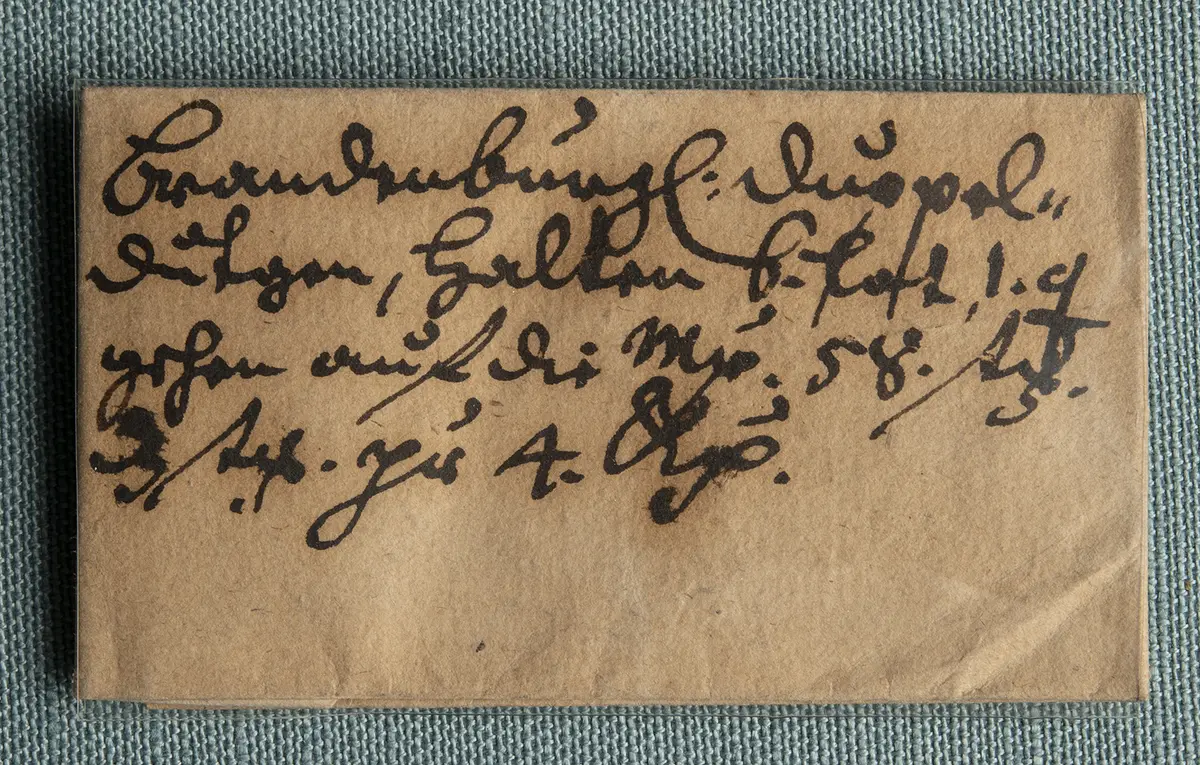 Brandenburgl: duppel=
dütgen, halten 6. lot, 1. q
gehen auf die Mr. 58. stk.
3 stk. pr 4.